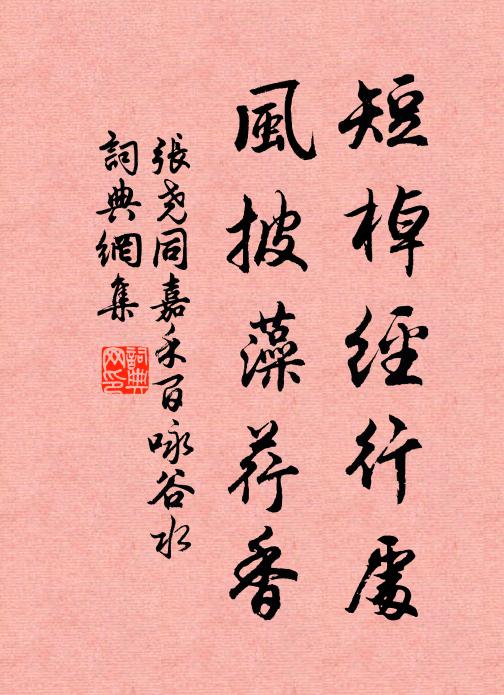 短棹經行處
風披藻荇香
張尧同嘉禾百咏谷水
詞典網集
詞典网印